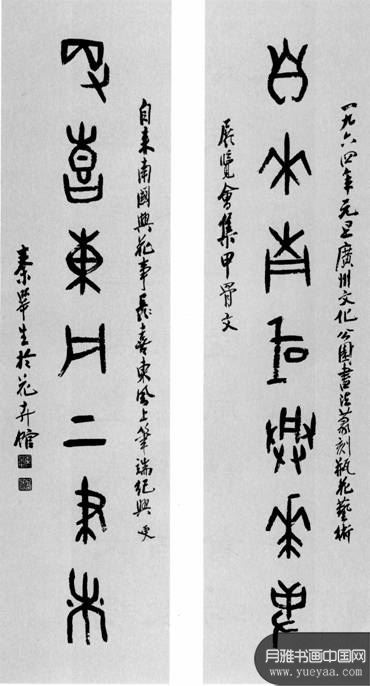 一九六四年元旦廣州文化公園書法篆刻瓶花藝術
自來南國興花事
展覽會集甲骨文
自來南國興花事長喜東風上筆端紀興
長喜東風上筆端
秦咢生於花卉館
月雅书画中国网
www.yueyaa.com